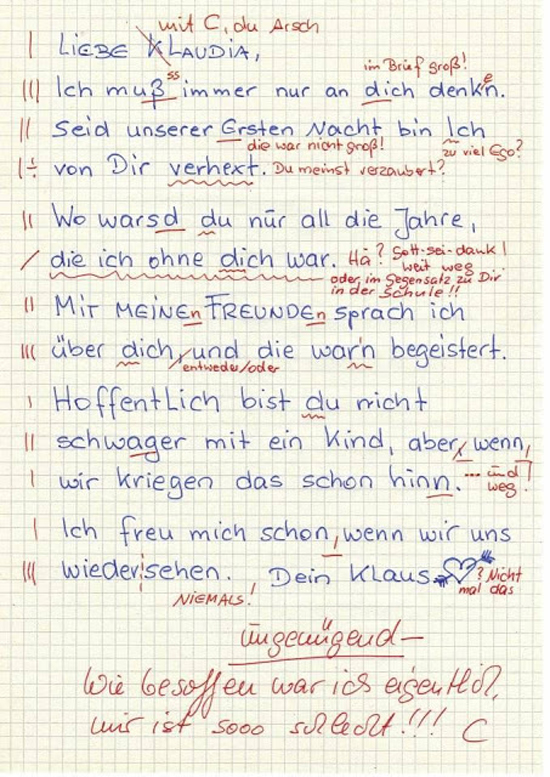 mit C, du Arsch
LiEBE KLAUDIA,
im Brief groß!
Ich muß immer nur an dich denk'n.
ss
e
Seid unserer Ersten Nacht bin Ich
die war nicht groß!
zu viel Ego?
von Dir verhext. Du meinst verzaubert?
Wo warsd du nur all die Jahre,
die ich ohne dich war. Hä? Gott-sei-dank!
weit weg
oder im Gegensatz zu Dir
in der Schule!!
MiT MEINEn FREUNDEn sprach ich
über dich, und die war'n begeistert.
entweder/oder
HoffentLich bist du nicht
schwager mit ein Kind, aber, wenn,
wir kriegen das schon hinn. ... und
weg!
Ich freu mich schon, wenn wir uns
wieder sehen. Dein Klaus ? Nicht
mal das
NIEMALS!
ungenügend –
Wie besoffen war ich eigentlich,
mir ist sooo schlecht!!! C